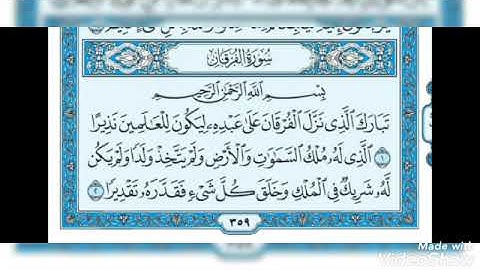 سُورَةُ الْفُرْقَانِ
بِسْمِ اللَّهِ الرَّحْمَٰنِ الرَّحِيمِ
تَبَارَكَ الَّذِي نَزَّلَ الْفُرْقَانَ عَلَىٰ عَبْدِهِ لِيَكُونَ لِلْعَالَمِينَ نَذِيرًا
١ الَّذِي لَهُ مُلْكُ السَّمَٰوَٰتِ وَالْأَرْضِ وَلَمْ يَتَّخِذْ وَلَدًا وَلَمْ يَكُن
لَّهُ شَرِيكٌ فِي الْمُلْكِ وَخَلَقَ كُلَّ شَيْءٍ فَقَدَّرَهُ تَقْدِيرًا ٢
٣٥٩
Made with
VivaVideo